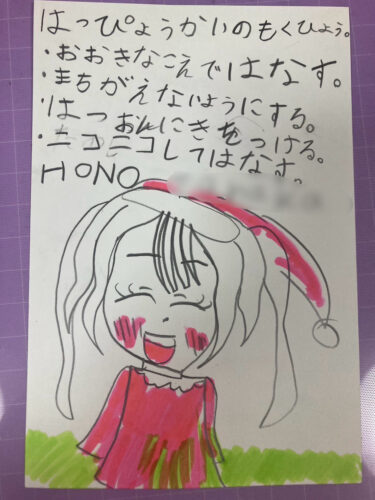 はっぴょうかいのもくひょう。
・おおきなこえではなす。
・まちがえないようにする。
・はつおんにきをつける。
・ニコニコしてはなす。
HONO